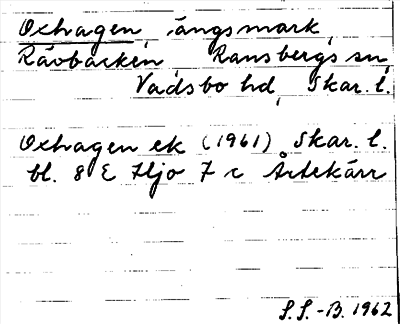 Oxhagen, ängsmark,
Rävbacken Ransbergs sn,
Vadsbo hd, Skar. l.
Oxhagen ek (1961) Skar. l.
bl. 8 E Hjo 7 c Årtekärr
S.S.-B. 1962